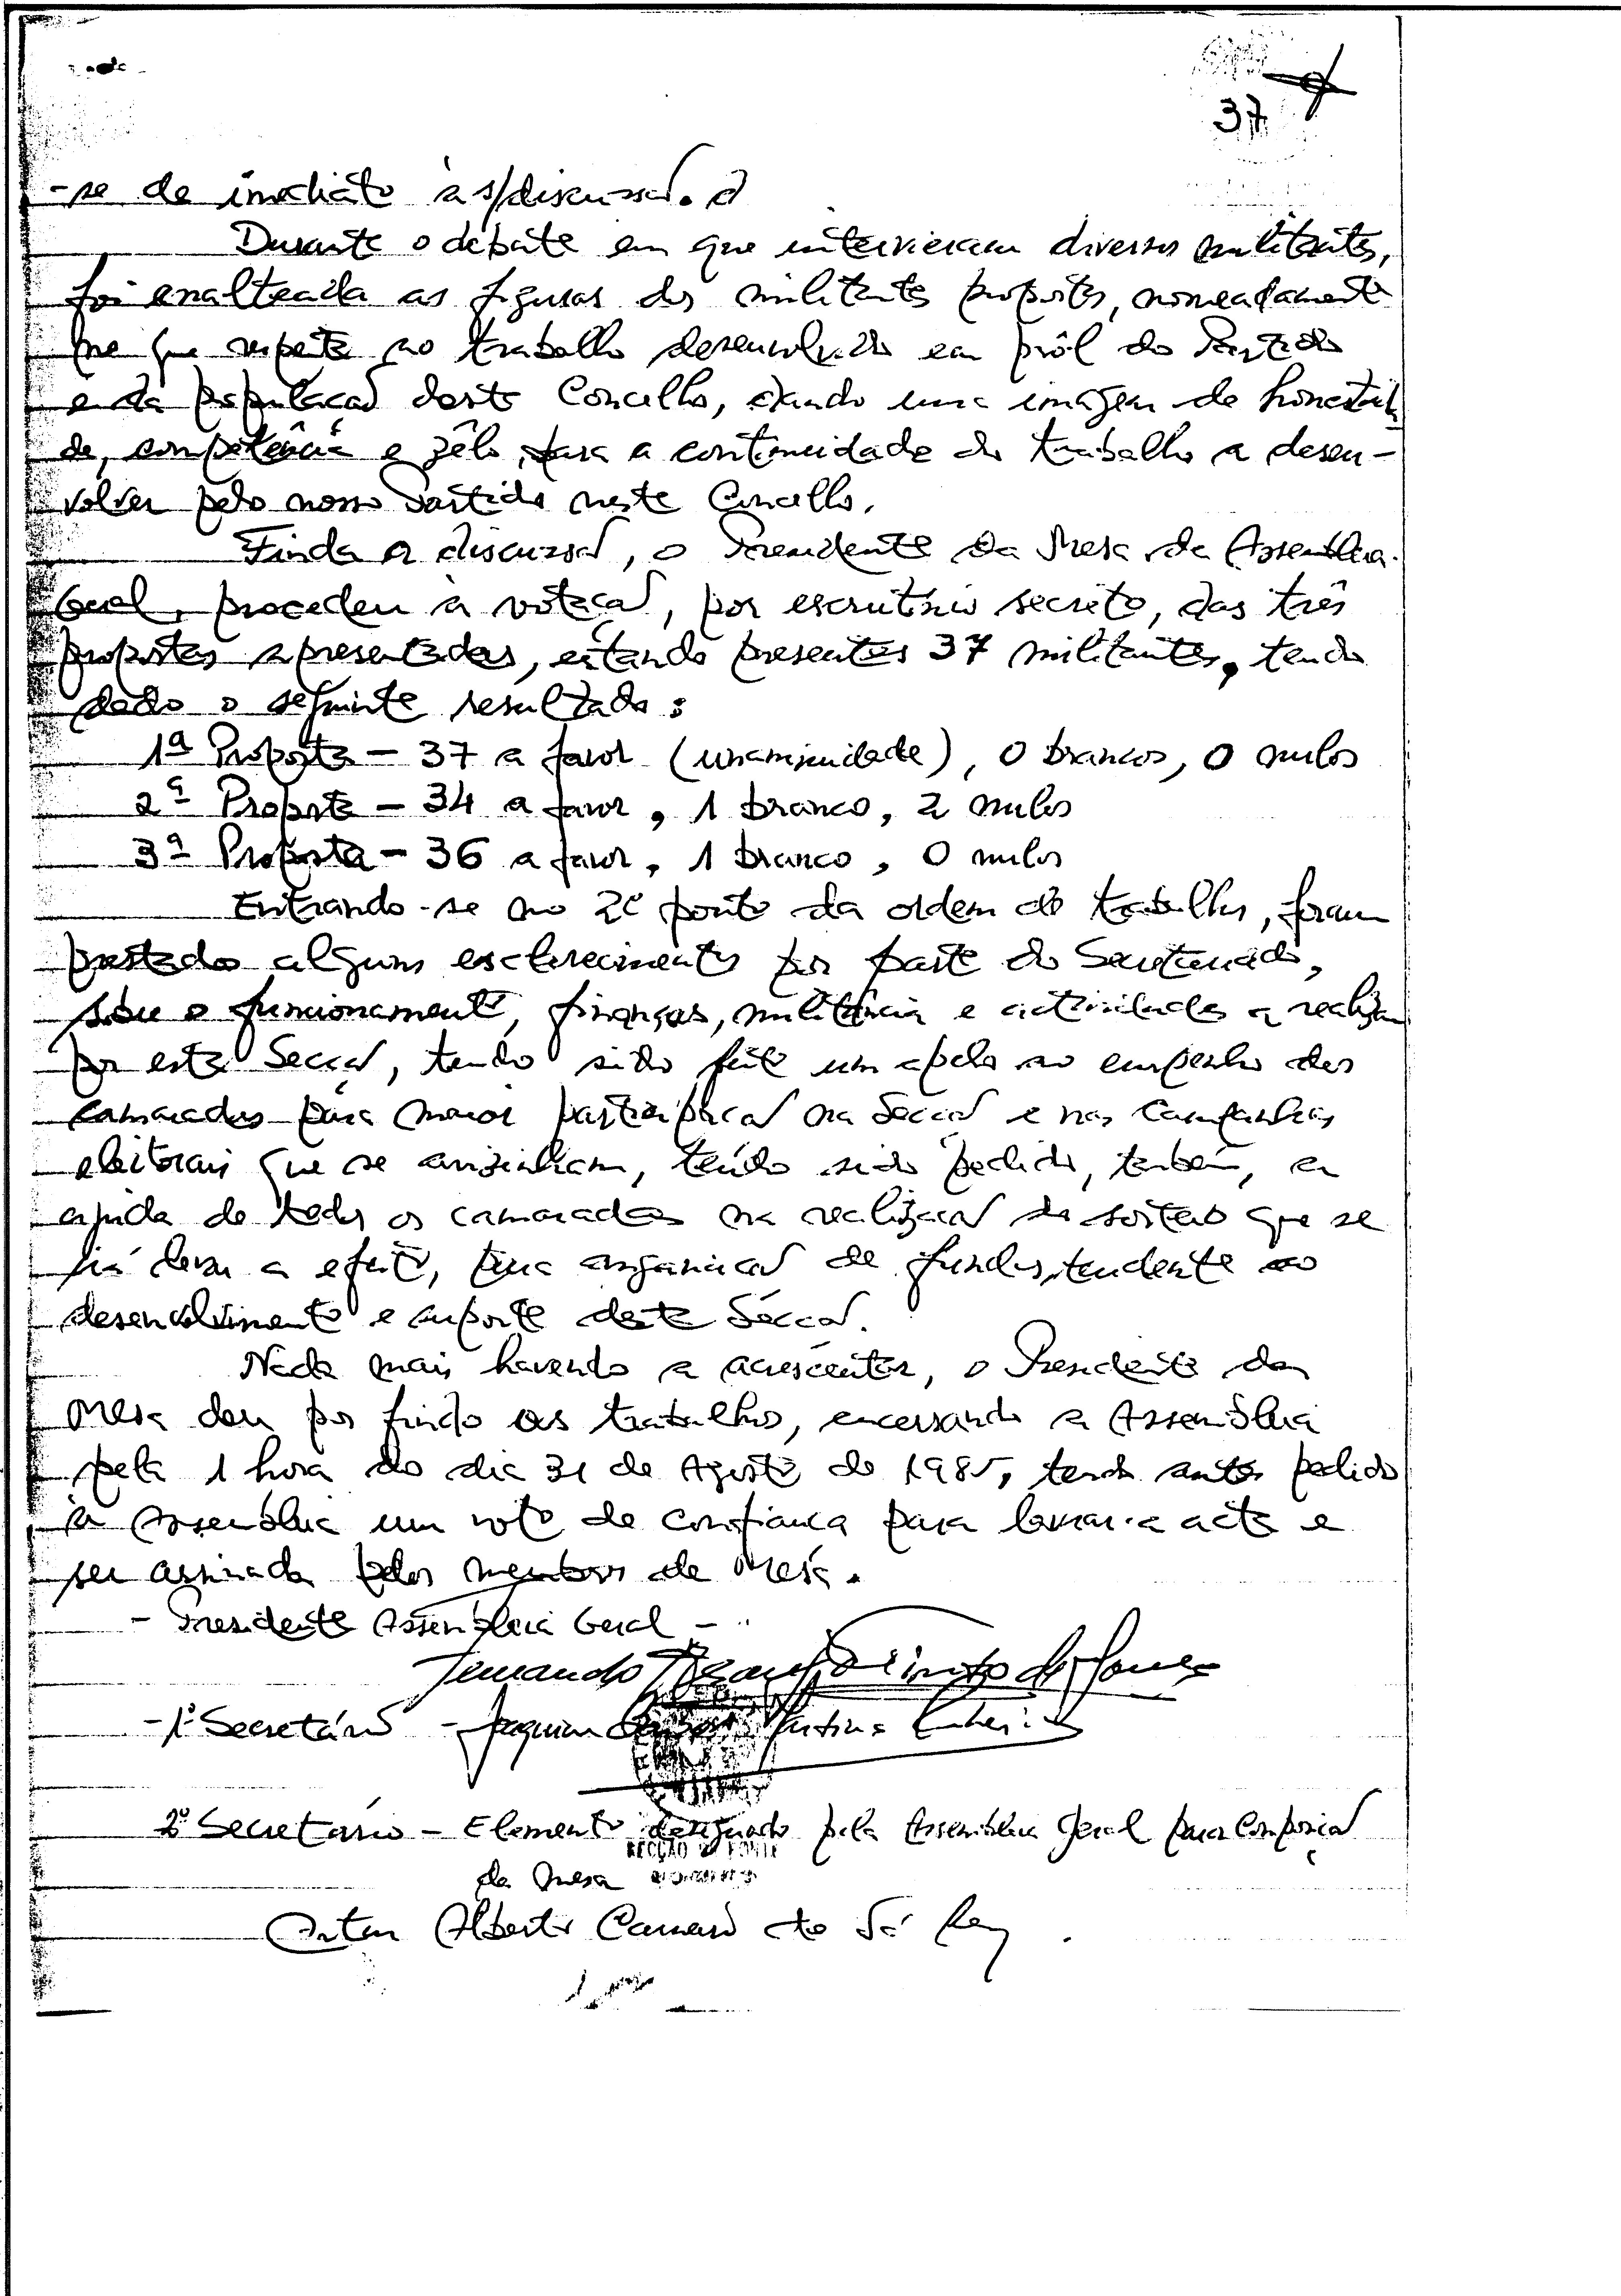 37
-se de imediato à s/discussão.
Durante o debate em que intervieram diversos militantes,
foi enalteada as figuras dos militantes propostos, nomeadamente
no que respeita ao trabalho desenvolvido em prôl do Partido
e da população deste Concelho, dando uma imagem de honestida
de, competência e zêlo, para a continuidade do trabalho a desen-
volver pelo nosso Partido neste Concelho.
Finda a discussão, o Presidente da Mesa da Assembleia
Geral, procedeu à votação, por escrutínio secreto, das três
propostas apresentadas, estando presentes 37 militantes, tendo
dado o seguinte resultado:
1ª Proposta - 37 a favor (unaminidade), 0 brancos, 0 nulos
2ª Proposta - 34 a favor, 1 branco, 2 nulos
3ª Proposta - 36 a favor, 1 branco, 0 nulos
Entrando-se no 2º ponto da ordem de trabalhos, foram
prestados alguns esclarecimentos por parte do Secretariado,
sobre o funcionamento, finanças, militância e actividades a realizar
por esta Secção, tendo sido feito um apelo ao empenho dos
camaradas para maior participação na Secção e nas Campanhas
eleitorais que se avizinham, tendo sido pedido, também, a
ajuda de todos os camaradas na realização do sorteio que se
irá levar a efeito, para angariação de fundos, tendente ao
desenvolvimento e suporte desta Secção.
Nada mais havendo a acrescentar, o Presidente da
Mesa deu por findo os trabalhos, encerrando a Assembleia
pela 1 hora do dia 31 de Agosto de 1985, tendo antes pedido
à Assembleia um voto de confiança para lavrar a acta e
ser assinada pelos membros da Mesa.
- Presidente Assembleia Geral -
Fernando Pinto de Sousa
- 1º Secretário - Joaquim Martins
2º Secretário - Elemento designado pela Assembleia Geral para Composição
SECÇÃO
da Mesa
Artur Alberto Carneiro de Sá Rey